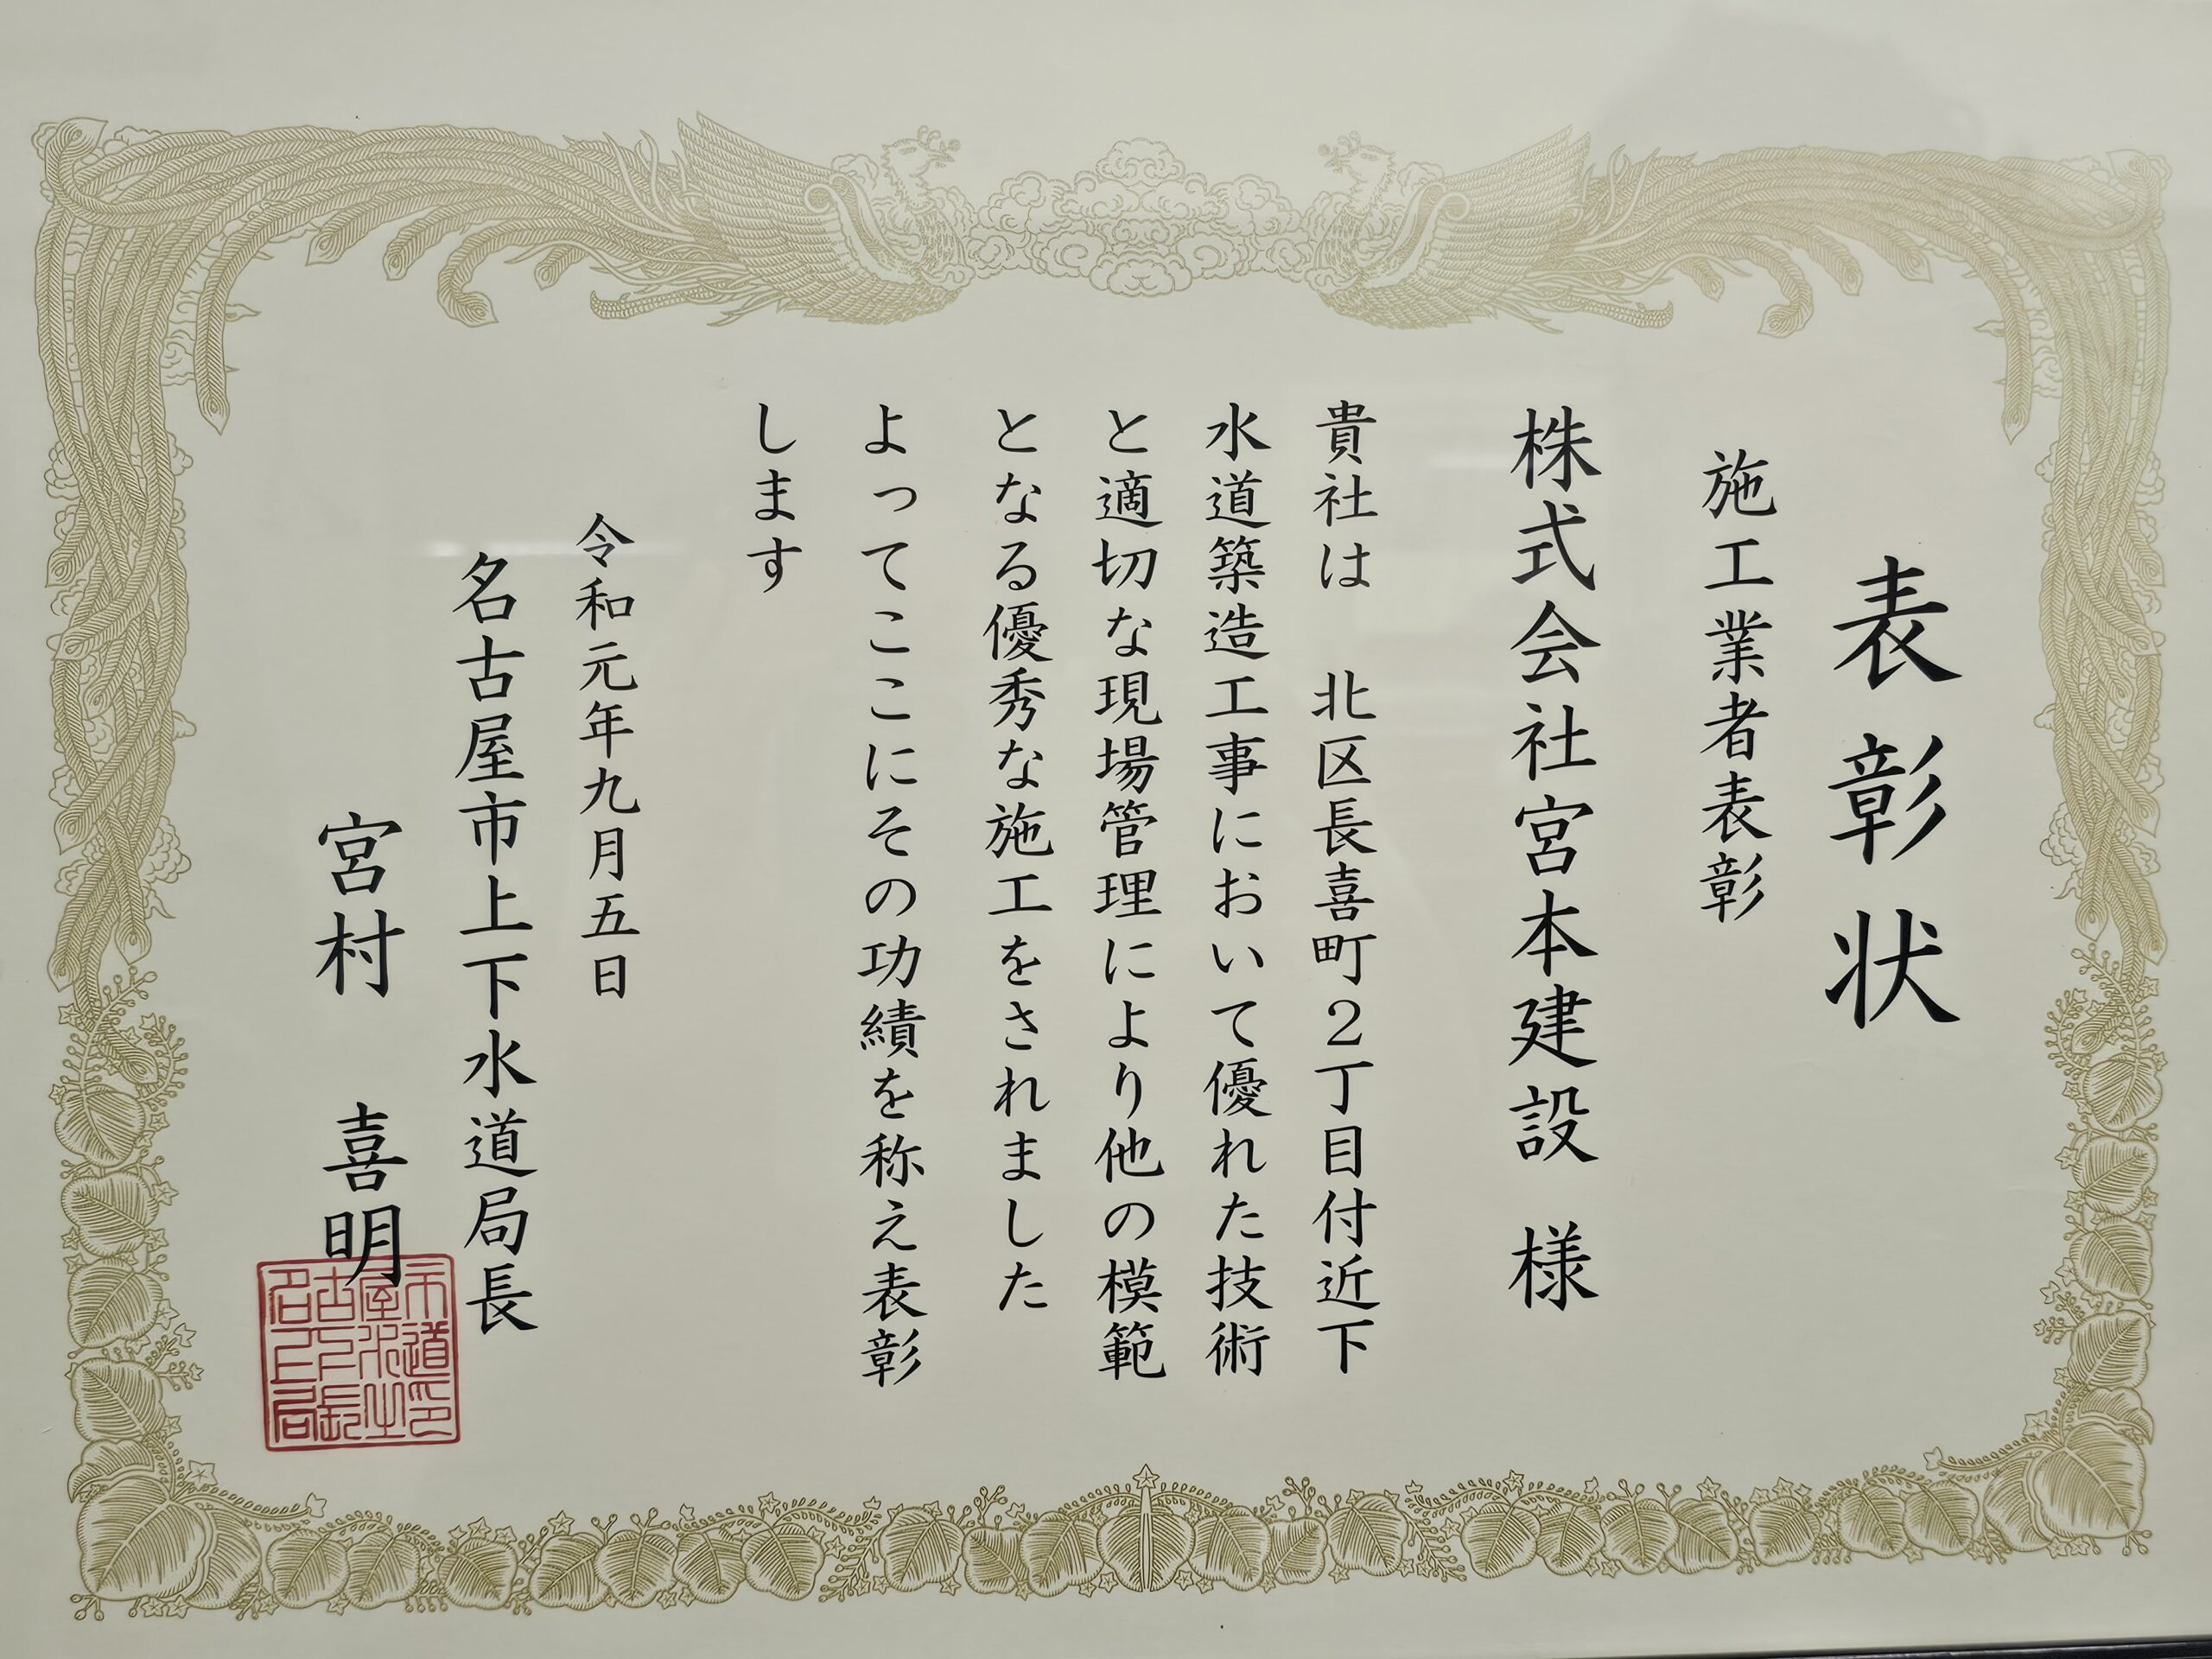 表彰状
施工業者表彰
株式会社宮本建設 様
貴社は 北区長喜町2丁目付近下
水道築造工事において優れた技術
と適切な現場管理により他の模範
となる優秀な施工をされました
よってここにその功績を称え表彰
します
令和元年九月五日
名古屋市上下水道局長
宮村 喜明
名古屋市上下水道局長之印